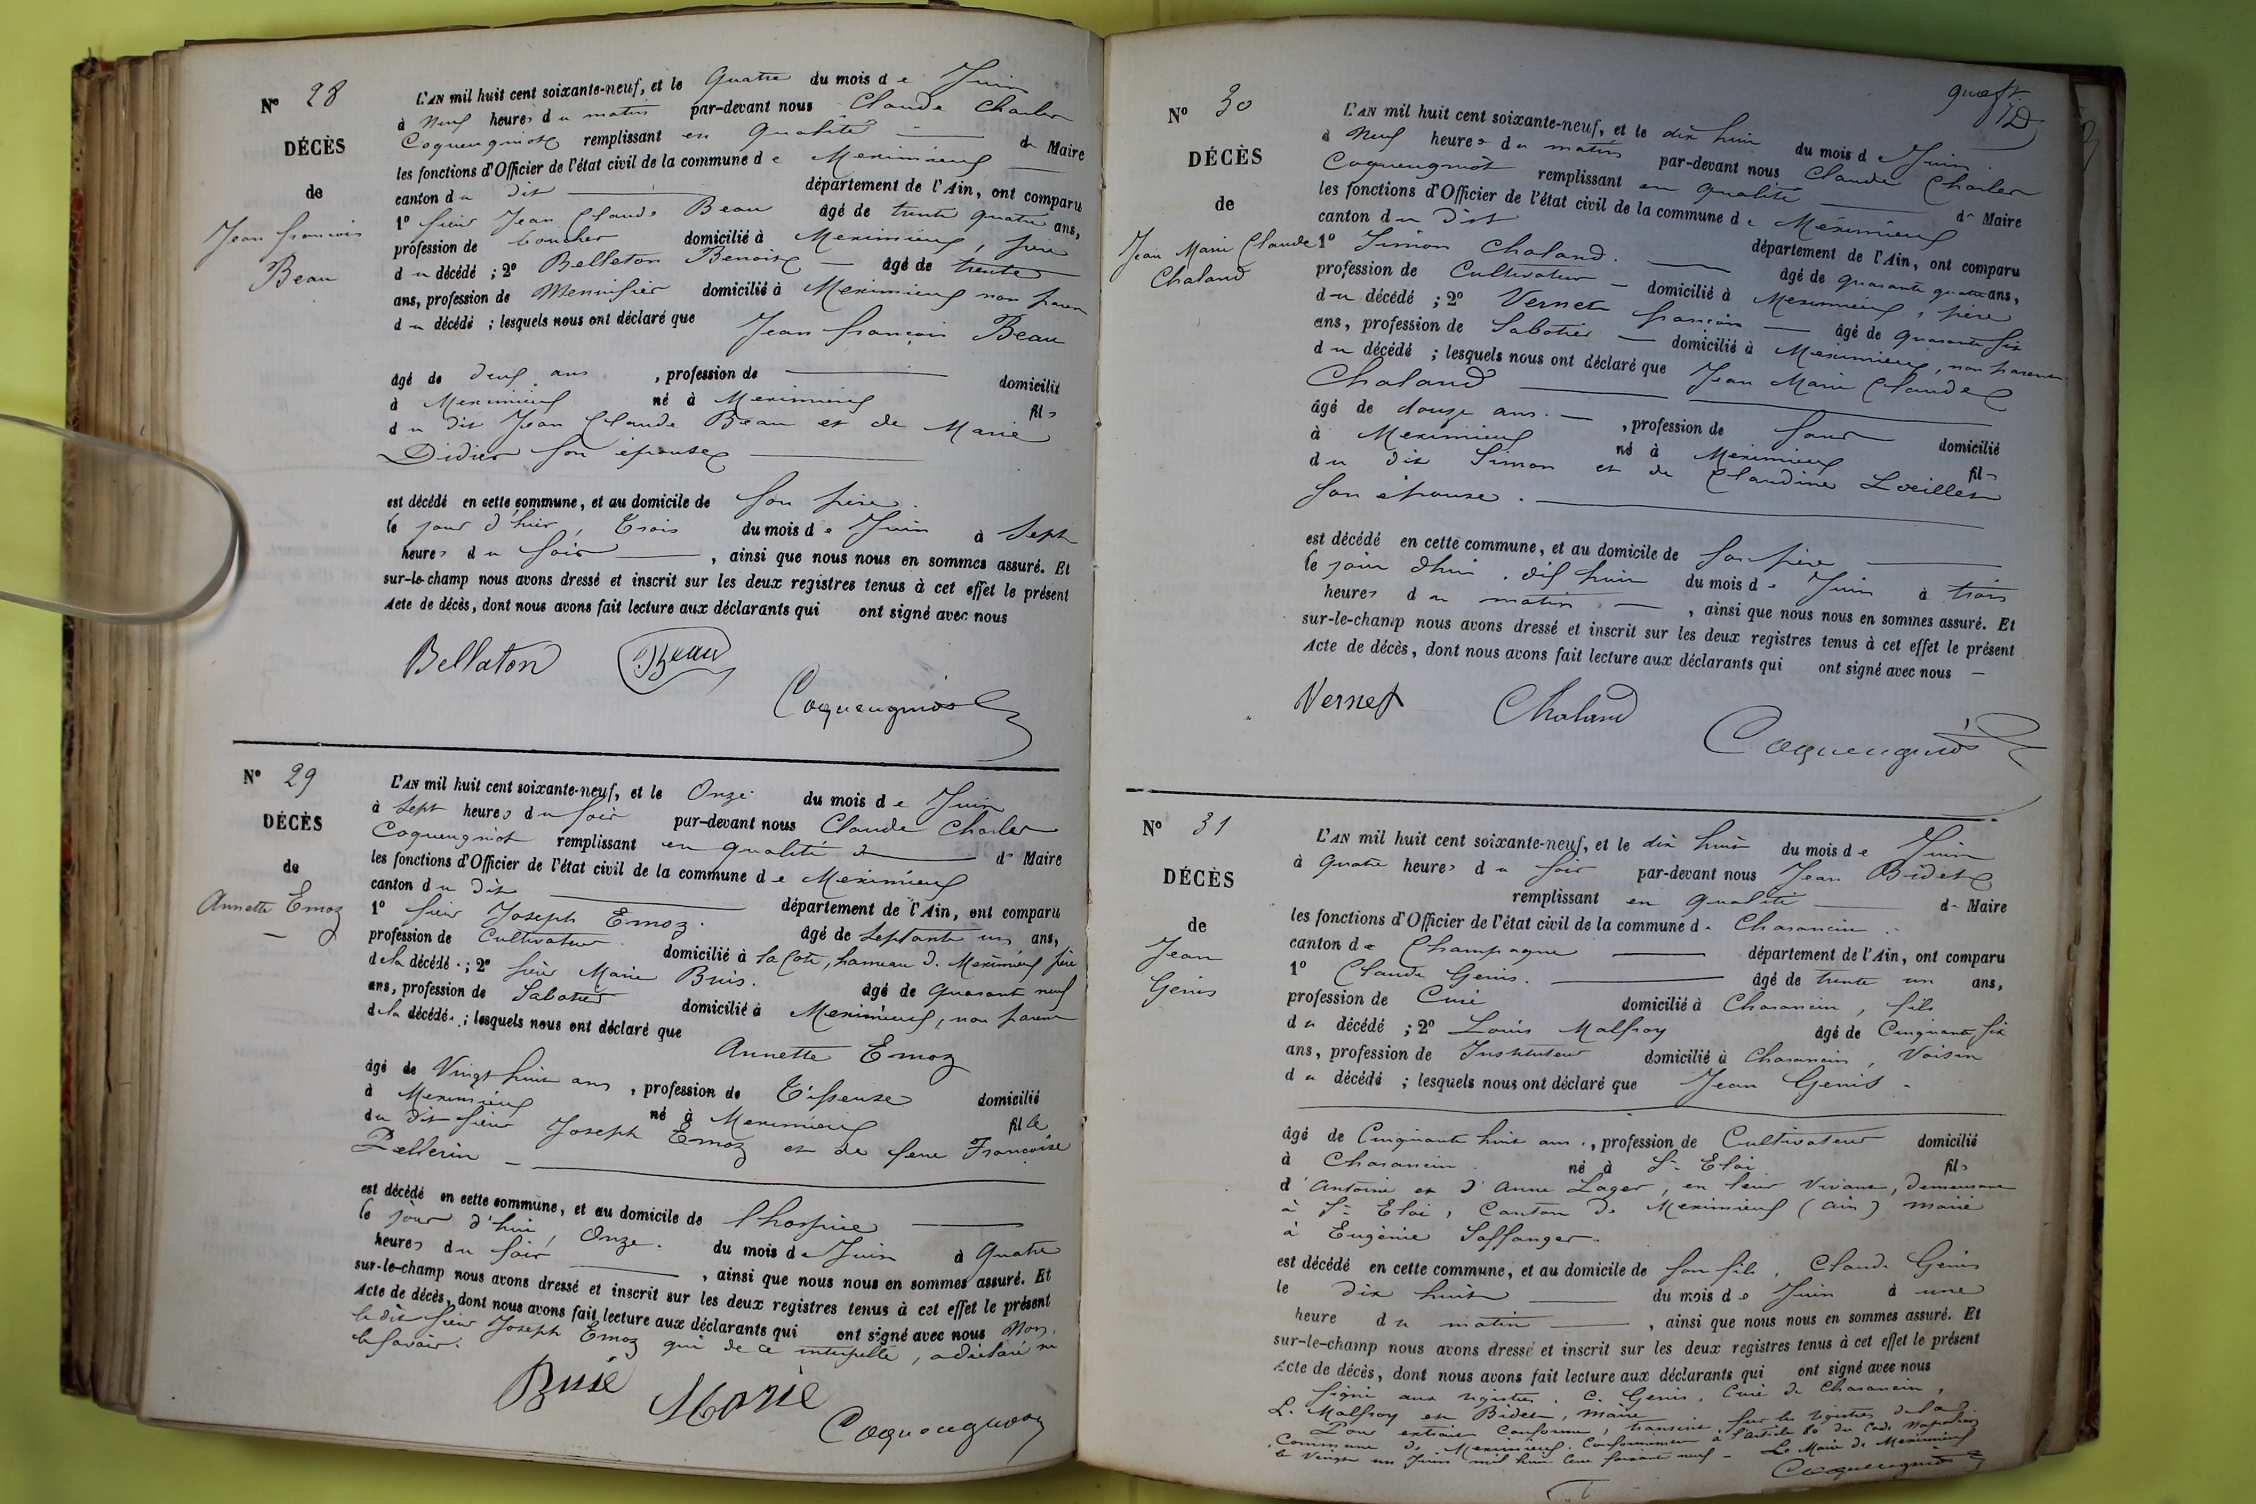 N° 28
DÉCÈS
de
Jean françois
Beau
L'AN mil huit cent soixante-neuf, et le Quatre du mois de Juin
à Neuf heures du matin par-devant nous Claude Charles
Coqueugniot remplissant en qualité de Maire
les fonctions d'Officier de l'état civil de la commune de Meximieux
canton du dit département de l'Ain, ont comparu
1° sieur Jean Claude Beau âgé de trente quatre ans,
profession de boucher domicilié à Meximieux, père
du décédé ; 2° Belleton Benoit âgé de trente
ans, profession de Menuisier domicilié à Meximieux non parent
du décédé ; lesquels nous ont déclaré que Jean françois Beau
âgé de deux ans, profession de domicilié
à Meximieux né à Meximieux fils
du dit Jean Claude Beau et de Marie
Didier son épouse
est décédé en cette commune, et au domicile de son père.
le jour d'hier, trois du mois de Juin à Sept
heures du soir, ainsi que nous nous en sommes assuré. Et
sur-le-champ nous avons dressé et inscrit sur les deux registres tenus à cet effet le présent
Acte de décès, dont nous avons fait lecture aux déclarants qui ont signé avec nous
Bellaton Beau
Coqueugniot
N° 29
DÉCÈS
de
Annette Emoz
L'AN mil huit cent soixante-neuf, et le Onze du mois de Juin
à Sept heures du soir par-devant nous Claude Charles
Coqueugniot remplissant en qualité de Maire
les fonctions d'Officier de l'état civil de la commune de Meximieux
canton du dit département de l'Ain, ont comparu
1° sieur Joseph Emoz. âgé de Septante un ans,
profession de Cultivateur. domicilié à la Cote, hameau de Meximieux père
de la décédé ; 2° sieur Marie Buis. âgé de Quarante neuf
ans, profession de Sabotier domicilié à Meximieux, non parent
de la décédé ; lesquels nous ont déclaré que Annette Emoz
âgé de Vingt huit ans, profession de Tisseuse domicilié
à Meximieux né à Meximieux fille
du dit sieur Joseph Emoz et de feue Françoise
Pellerin
est décédé en cette commune, et au domicile de l'hospice
le jour d'hui Onze. du mois de Juin à Quatre
heures du soir, ainsi que nous nous en sommes assuré. Et
sur-le-champ nous avons dressé et inscrit sur les deux registres tenus à cet effet le présent
Acte de décès, dont nous avons fait lecture aux déclarants qui ont signé avec nous Non
le dit sieur Joseph Emoz qui de ce interpellé, a déclaré ne
le savoir.
Buis Marie
Coqueugniot
N° 30
DÉCÈS
de
Jean Marie Claude
Chaland
L'AN mil huit cent soixante-neuf, et le dix huit du mois de Juin
à Neuf heures du matin par-devant nous Claude Charles
Coqueugniot remplissant en qualité de Maire
les fonctions d'Officier de l'état civil de la commune de Meximieux
canton du dit département de l'Ain, ont comparu
1° Simon Chaland. âgé de quarante quatre ans,
profession de Cultivateur domicilié à Meximieux, père
du décédé ; 2° Vernet françois âgé de quarante six
ans, profession de Sabotier domicilié à Meximieux, non parent
du décédé ; lesquels nous ont déclaré que Jean Marie Claude
Chaland
âgé de douze ans., profession de domicilié
à Meximieux né à Meximieux fils
du dit Simon et de Claudine Loeillet
son épouse.
est décédé en cette commune, et au domicile de son père
le jour d'hui, dix huit du mois de Juin à trois
heures du matin, ainsi que nous nous en sommes assuré. Et
sur-le-champ nous avons dressé et inscrit sur les deux registres tenus à cet effet le présent
Acte de décès, dont nous avons fait lecture aux déclarants qui ont signé avec nous
Vernet Chaland
Coqueugniot
N° 31
DÉCÈS
de
Jean
Genis
L'AN mil huit cent soixante-neuf, et le dix huit du mois de Juin
à quatre heures du soir par-devant nous Jean Bidet
remplissant en qualité de Maire
les fonctions d'Officier de l'état civil de la commune de Chavancin
canton de Champagne département de l'Ain, ont comparu
1° Claude Genis. âgé de trente un ans,
profession de Curé domicilié à Chavancin, fils
du décédé ; 2° Louis Malfroy âgé de Cinquante six
ans, profession de Instituteur domicilié à Chavancin, Voisin
du décédé ; lesquels nous ont déclaré que Jean Genis
âgé de Cinquante huit ans., profession de Cultivateur domicilié
à Chavancin. né à St Eloi fils
d'Antoine et d'Anne Lager, en leur vivant, demeurant
à St Eloi, Canton de Meximieux (ain) marié
à Eugénie Saffanger.
est décédé en cette commune, et au domicile de son fils, Claude Genis
le dix huit du mois de Juin à une
heure du matin, ainsi que nous nous en sommes assuré. Et
sur-le-champ nous avons dressé et inscrit sur les deux registres tenus à cet effet le présent
Acte de décès, dont nous avons fait lecture aux déclarants qui ont signé avec nous
Signé aux registres. C. Genis, Curé de Chavancin,
L. Malfroy et Bidet, maire
Pour extrait conforme, transcrit sur les registres de la
Commune de Meximieux, Conformément à l'article 80 du Code Napoléon
le vingt un Juin mil huit cent soixante neuf - Le Maire de Meximieux
Coqueugniot